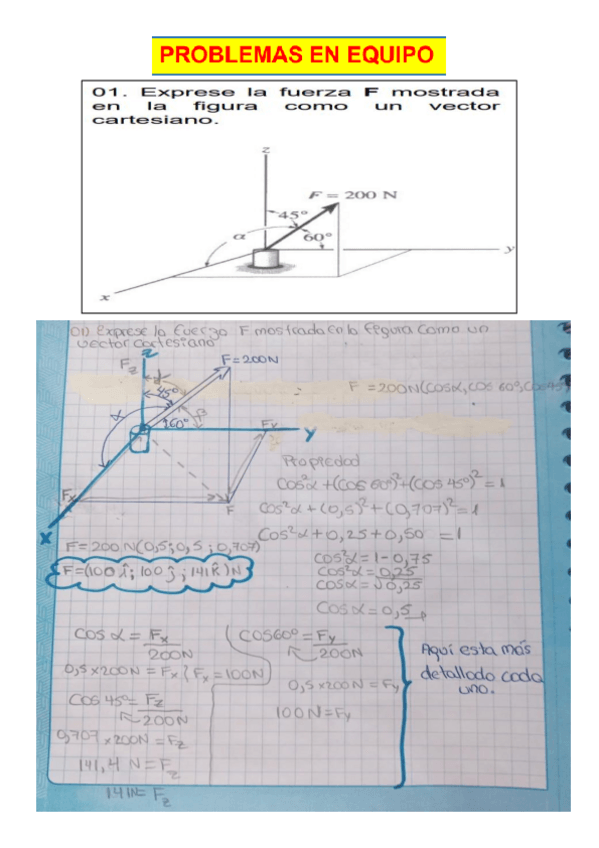 PROBLEMAS EN EQUIPO
01. Exprese la fuerza F mostrada
en la figura como un vector
cartesiano.
z
F = 200 N
45°
α
60°
y
x
01) Exprese la fuerza F mostrada en la figura como un
vector cartesiano
Z
Fz
F=200N
45°
α
β
60°
Fy
Y
F =200N(COSα, COS 60°, COS45°)
Fx
F
X
Propiedad
Cos²α +(COS 60°)²+(COS 45°)²=1
Cos²α+(0,5)²+(0,707)²=1
Cos²α+0,25+0,50 =1
Cos²α=1-0,75
Cos²α=0,25
Cosα=√0,25
Cosα=0,5
F=200N(0,5;0,5;0,707)
F=(100 î;100 ĵ;141k̂)N
COS α = Fx
200N
0,5x200N = Fx
Fx=100N
COS 45°= Fz
200N
0,707 x200N=Fz
141,4 N= Fz
141N= Fz
COS60°=Fy
200N
0,5x200N=Fy
100N=Fy
Aquí esta más
detallado cada
uno.